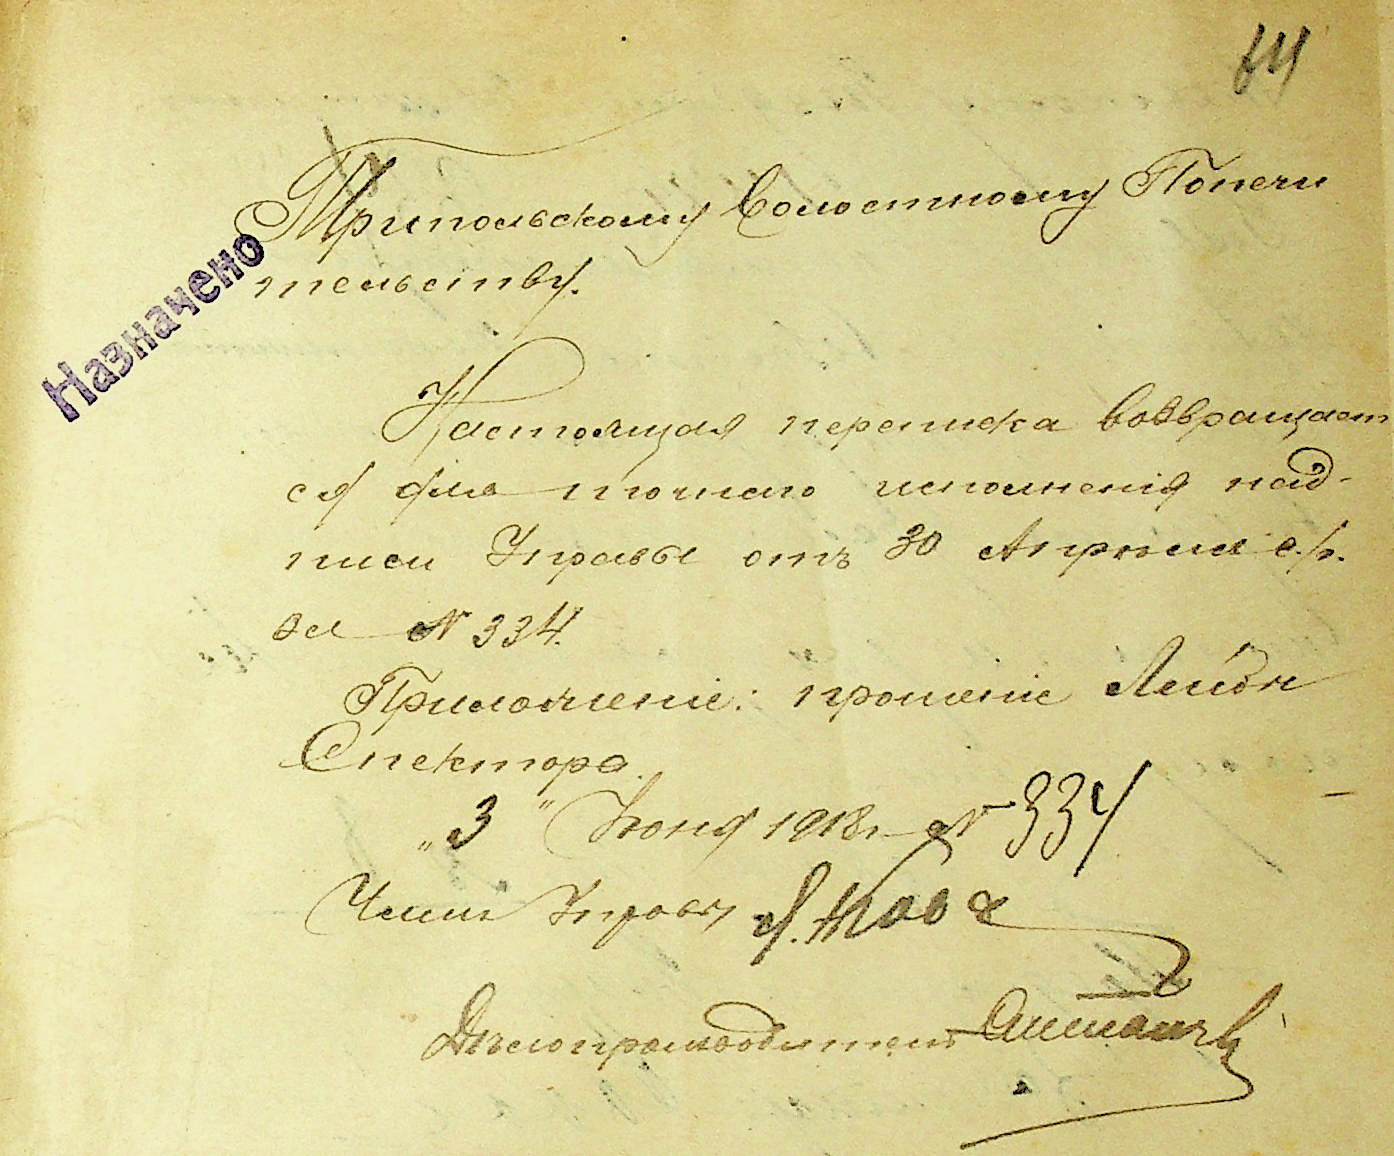 64
Трипольскому Волостному Попечи
тельству.
Назначено
Настоящая переписка возвращает
ся для точнаго исполнения над-
писи Управы отъ 30 Апреля с/г.
за № 334.
Приложеніе: прошеніе Лейбы
Спектора.
„3" Іюня 1918 г. № 334
Членъ Управы
Дѣлопроизводитель